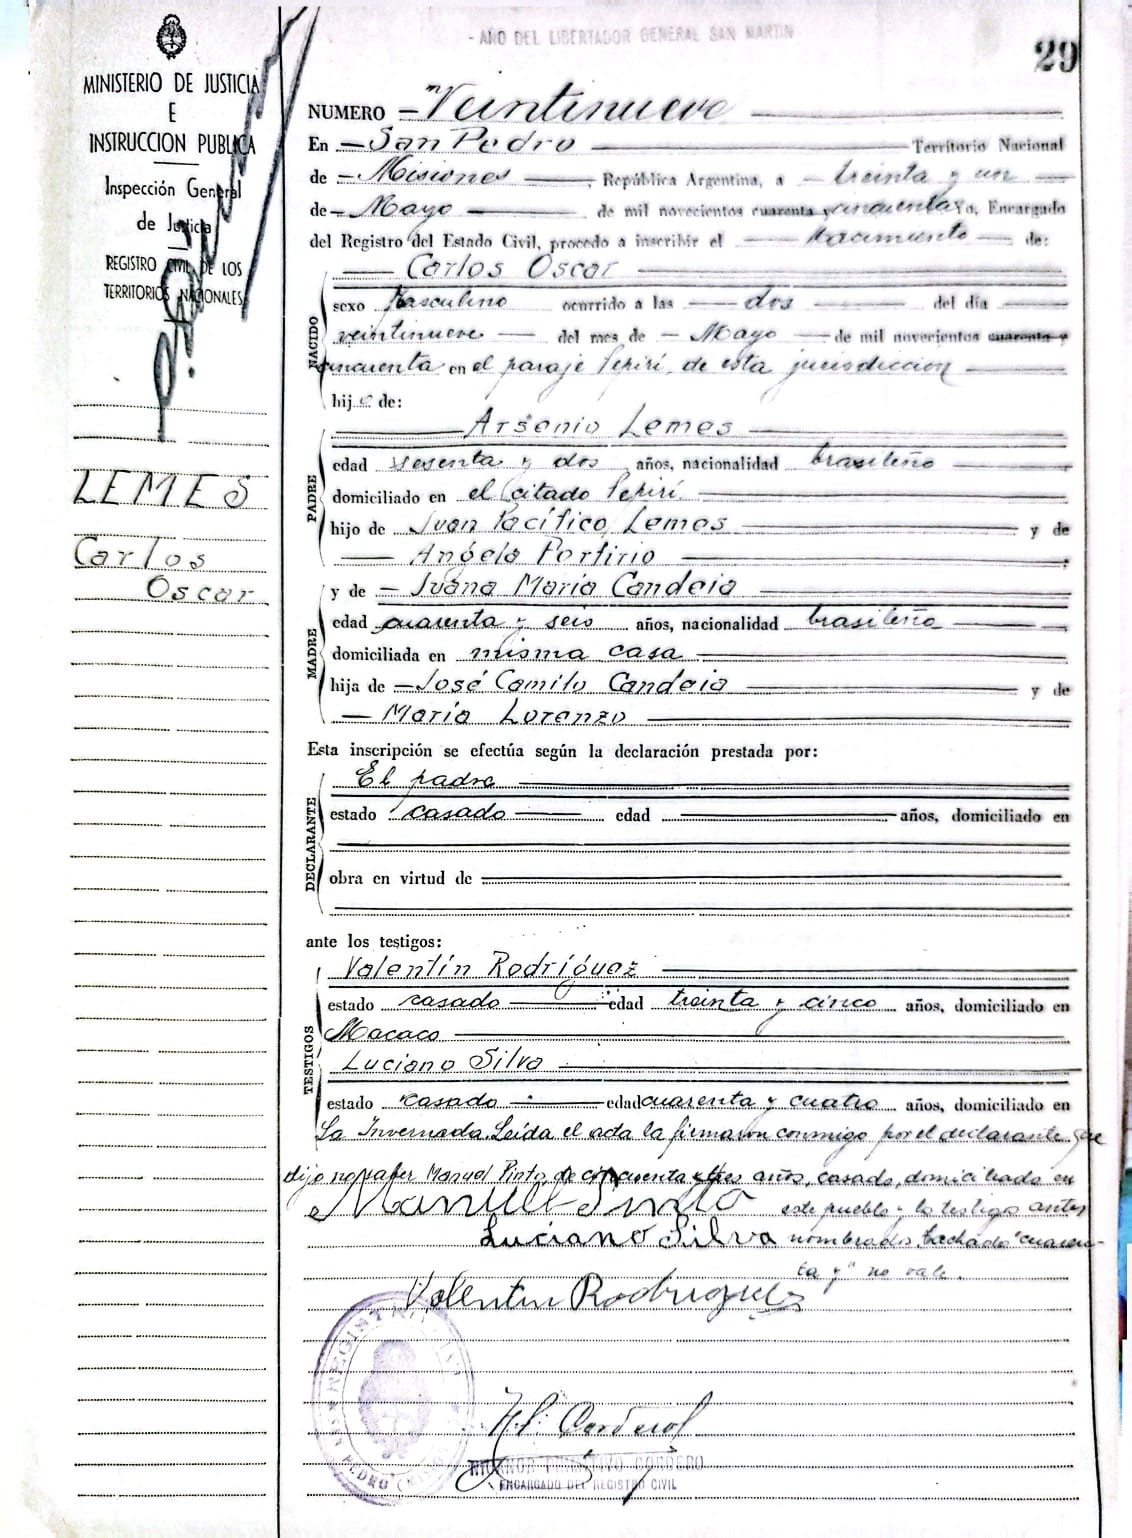 - AÑO DEL LIBERTADOR GENERAL SAN MARTIN
29
MINISTERIO DE JUSTICIA
E
INSTRUCCION PUBLICA
Inspección General
de Justicia
REGISTRO CIVIL DE LOS
TERRITORIOS NACIONALES
LEMES
Carlos
Oscar
NUMERO - Veintinueve
En - San Pedro - Territorio Nacional
de - Misiones -, República Argentina, a - treinta y un -
de - Mayo - de mil novecientos cuarenta y cincuenta Yo, Encargado
del Registro del Estado Civil, procedo a inscribir el - nacimiento - de:
NACIDO
Carlos Oscar
sexo Masculino ocurrido a las - dos - del día
veintinueve - del mes de - Mayo - de mil novecientos cuarenta y
cincuenta en el paraje Pepirí, de esta jurisdiccion
hijo de:
PADRE
Arsenio Lemes
edad sesenta y dos años, nacionalidad brasileño
domiciliado en el citado Pepirí
hijo de Juan Pacífico Lemes y de
Angela Porfirio
MADRE
y de - Juana María Candeia
edad cuarenta y seis años, nacionalidad brasileña
domiciliada en misma casa
hija de - José Camilo Candeia y de
- María Lorenzo
Esta inscripción se efectúa según la declaración prestada por:
DECLARANTE
El padre
estado casado edad años, domiciliado en
obra en virtud de
ante los testigos:
TESTIGOS
Valentín Rodríguez
estado casado edad treinta y cinco años, domiciliado en
Macaco
Luciano Silva
estado casado edad cuarenta y cuatro años, domiciliado en
La Invernada. Leída el acta la firmaron conmigo por el declarante que
dijo no saber Manuel Pinto, de cincuenta y tres años, casado, domiciliado en
Manuel Pinto este pueblo y los testigos antes
Luciano Silva nombrados. Tachado "cuaren-
ta y" no vale.
Valentin Rodrigues
REGISTRO CIVIL
SAN PEDRO
Cordero
CORDERO
ENCARGADO DEL REGISTRO CIVIL